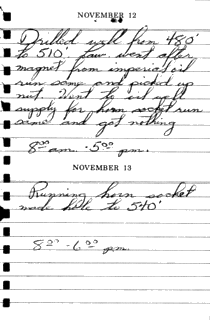 NOVEMBER 12
Drilled well from 480'
to 510' Jaw went after
magnet from imperial oil
run same and picked up
nut. Went to oil well
supply for horn socket run
same and got nothing
8 00 am. - 5 00 pm.
NOVEMBER 13
Running horn socket
made hole to 540'
8 00 - 6 00 pm.